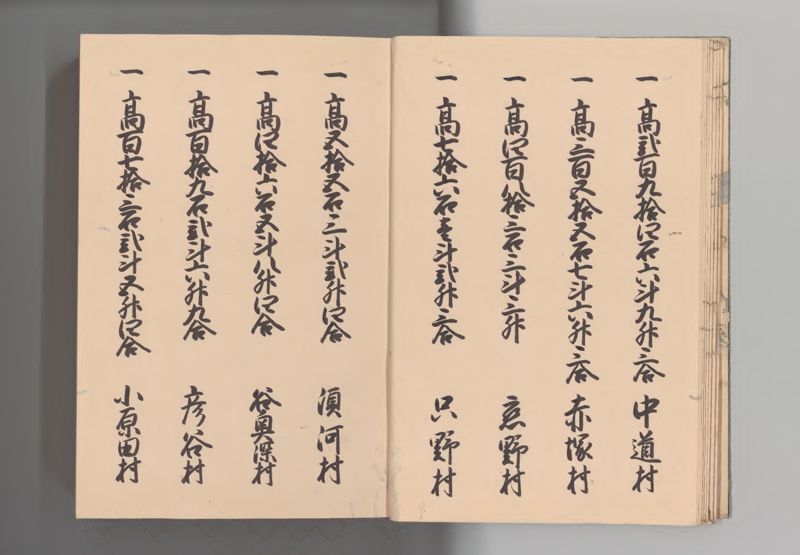 一 高弐百九拾四石六斗九升三合 中道村
一 高三百五拾五石七斗六升三合 赤塚村
一 高四百八拾三石三斗三升 野村
一 高七拾六石壱斗弐升三合 只野村
一 高五拾五石三斗弐升四合 須河村
一 高四拾六石五斗八升四合 谷奥深村
一 高百拾九石弐斗六升九合 彦谷村
一 高百七拾三石弐斗五升四合 小原田村